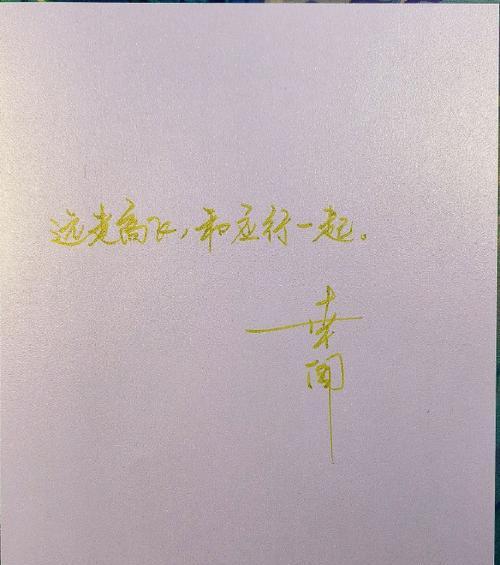 远走高飞，和应行一起。